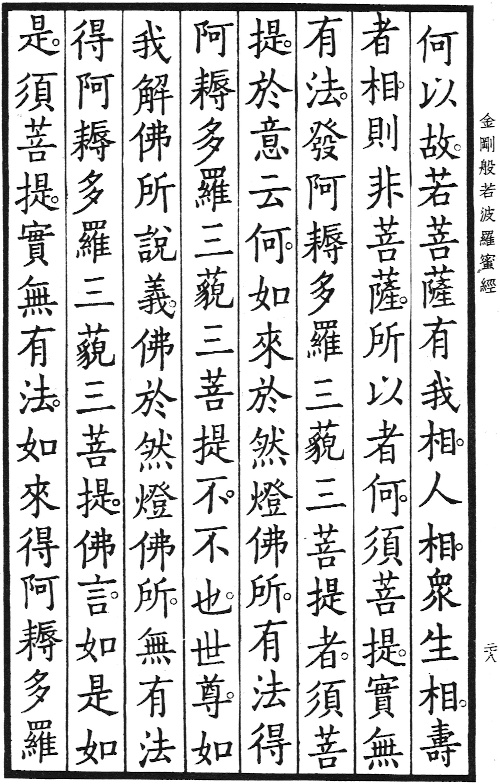 金剛般若波羅蜜經
何以故。若菩薩有我相。人相。眾生相。壽
者相。則非菩薩。所以者何。須菩提。實無
有法。發阿耨多羅三藐三菩提者。須菩
提。於意云何。如來於然燈佛所。有法得
阿耨多羅三藐三菩提不。不也。世尊。如
我解佛所說義。佛於然燈佛所。無有法
得阿耨多羅三藐三菩提。佛言。如是如
是。須菩提。實無有法。如來得阿耨多羅